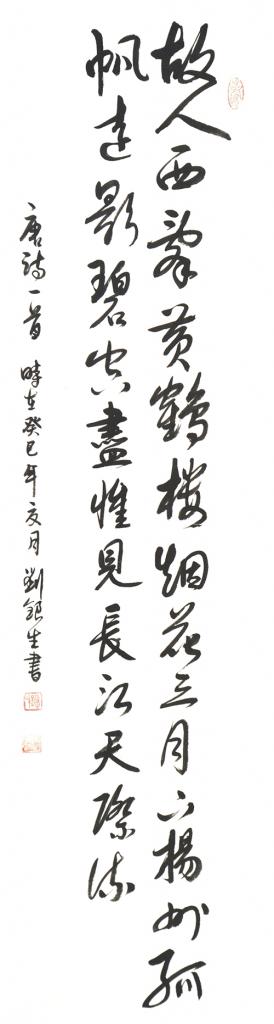 故人西辭黄鶴楼烟花三月下楊州孤
帆遠影碧空盡惟見長江天際流
唐詩一首 時在癸巳年夏月劉銀生書